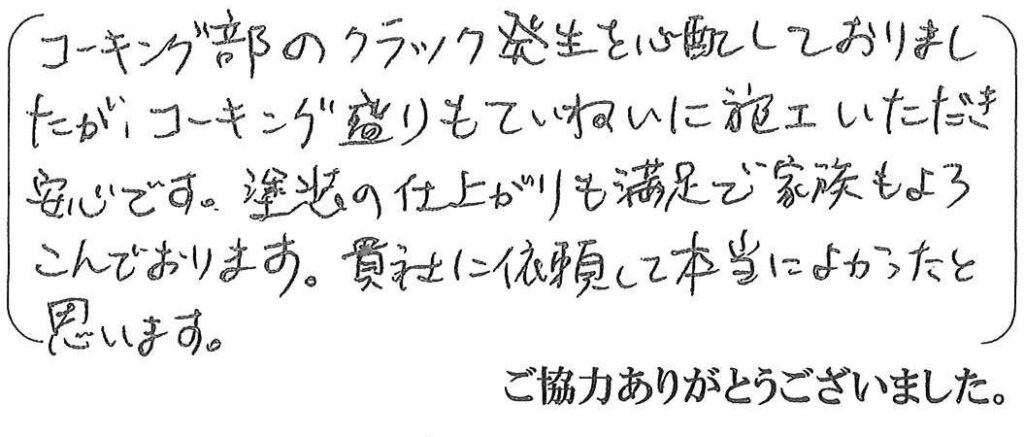 コーキング部のクラック発生を心配しておりまし
たが、コーキング盛りもていねいに施工いただき
安心です。塗装の仕上がりも満足で家族もよろ
こんでおります。貴社に依頼して本当によかったと
思います。
ご協力ありがとうございました。